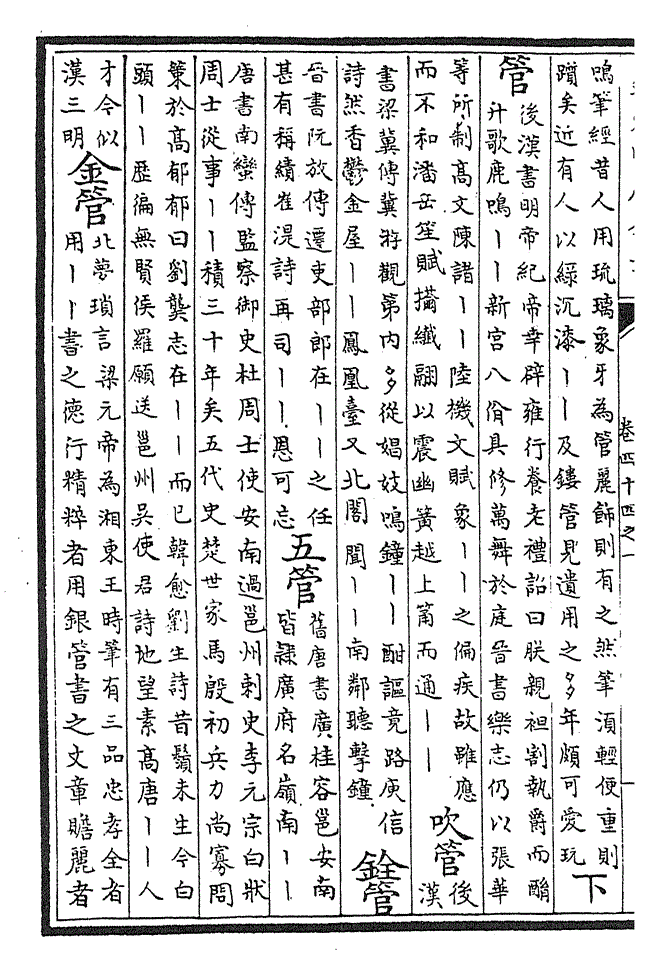 鳴筆經昔人用琉璃象牙為管麗飾則有之然筆須輕便重則
躓矣近有人以綠沉漆丨丨及鏤管見遺用之多年頗可愛玩
下
管
後漢書明帝紀帝幸辟雍行養老禮詔曰朕親袒割執爵而酳
升歌鹿鳴丨丨新宮八佾具修萬舞於庭晉書樂志仍以張華
等所制高文陳諸丨丨陸機文賦象丨丨之偏疾故雖應
而不和潘岳笙賦擂纖翮以震幽簧越上筩而通丨丨
吹管
後
漢
書梁冀傳冀游觀第內多從娼妓鳴鐘丨丨酣謳竟路庾信
詩然香鬱金屋丨丨鳳凰臺又北閣聞丨丨南鄰聽擊鐘
銓管
晉書阮放傳遷吏部郎在丨丨之任
甚有稱績崔湜詩再司丨丨恩可忘
五管
舊唐書廣桂容邕安南
皆隸廣府名嶺南丨丨
唐書南蠻傳監察御史杜周士使安南過邕州刺史李元宗白狀
周士從事丨丨積三十年矣五代史楚世家馬殷初兵力尚寡問
策於高郁郁曰劉龑志在丨丨而已韓愈劉生詩昔鬚未生今白
頭丨丨歷徧無賢侯羅願送邕州吳使君詩地望素高唐丨丨人
才今似
漢三明
金管
北夢瑣言梁元帝為湘東王時筆有三品忠孝全者
用丨丨書之德行精粹者用銀管書之文章贍麗者
卷四十四之一
一